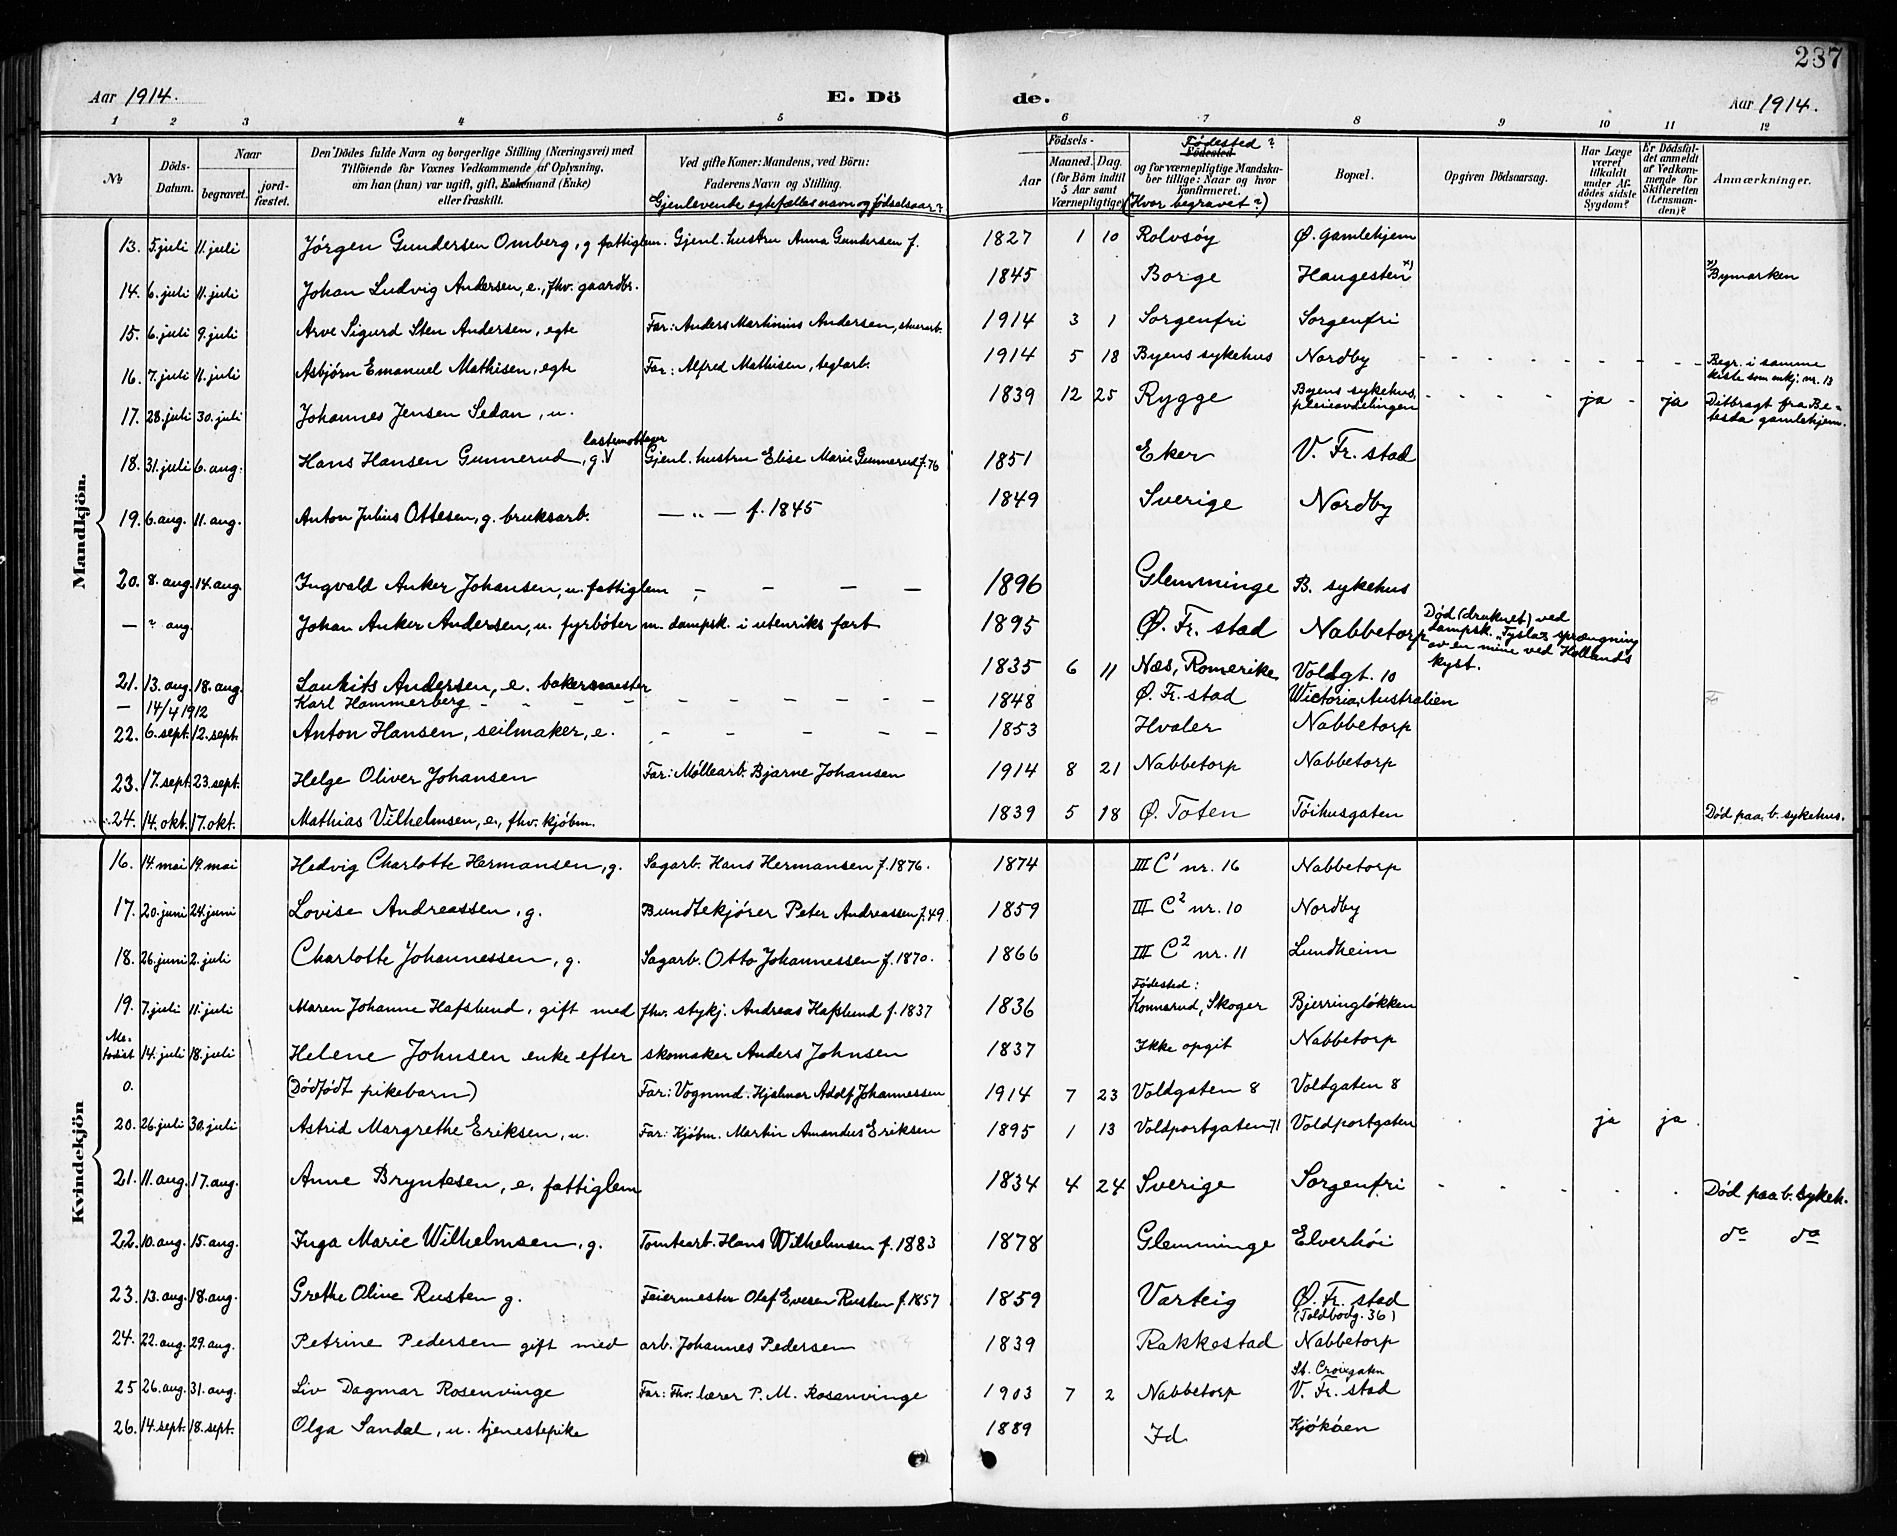 237
Aar 1914. E. Dö de. Aar 1914.
1 2 3 4 5 6 7 8 9 10 11 12
№ Döds-Datum. Naar begravet. jordfæstet. Den Dödes fulde Navn og borgerlige Stilling (Næringsvei) med Tilföiende for Voxnes Vedkommende af Oplysning, om han (hun) var ugift, gift, Enkemand (Enke) eller fraskilt. Ved gifte Koner: Mandens, ved Börn: Faderens Navn og Stilling. Gjenlevende egtefælles navn og fødselsaar? Födsels- Aar Maaned. Dag. (for Börn indtil 5 Aar samt Værnepligtige) Fødested? Födested og for værnepligtige Mandskaber tillige: Naar og hvor konfirmeret. (Hvor begravet?) Bopæl. Opgiven Dödsaarsag. Har Læge været tilkaldt under Afdödes sidste Sygdom? Er Dödsfaldet anmeldt af Vedkommende for Skifteretten (Lensmanden)? Anmærkninger.
Mandkjön.
13. 5. juli 11. juli Jørgen Gundersen Omberg, g fattiglem. Gjenl. hustru Anna Gundersen f. 1827 1 10 Rolvsøy Ø. Gamlehjem
14. 6. juli 11. juli Johan Ludvig Andersen, e., fhv. gaardbr. 1845 Borge Haugesten x) x) Bymarken
15. 6. juli 9. juli Arve Sigurd Sten Andersen, egte Far: Anders Martinius Andersen, stuerarb. 1914 3 1 Sorgenfri Sorgenfri
16. 7. juli 11. juli Asbjörn Emanuel Mathisen, egte Far: Alfred Mathisen, teglarb. 1914 5 18 Byens sykehus Nordby - - - - - - - Begr. i samme kiste som mkj. nr. 13
17. 28. juli 30. juli Johannes Jensen Sedan, u. 1839 12 25 Rygge Byens sykehus, pleieavdelingen - - - - ja - ja Ditbragt fra Betesda gamlehjem.
18. 31. juli 6. aug. Hans Hansen Gunnerud, g. V lastemottager Gjenl. hustru Elise Marie Gunnerud f. 76 1851 Eker V. Fr. stad
19. 6. aug. 11. aug. Anton Julius Ottesen, g. bruksarb. — „ — f. 1845 1849 Sverige Nordby
20. 8. aug. 14. aug. Ingvald Anker Johansen, u. fattiglem - - - - 1896 Glemminge B. sykehus
— ? aug. Johan Anker Andersen, u. fyrböter m. dampsk. i utenriks fart 1895 Ø. Fr. stad Nabbetorp Död (druknet) ved dampsk. „Tysla" sprængning av en mine ved Hollands kyst.
21. 13. aug. 18. aug. Laukits Andersen, e. bakermester 1835 6 11 Næs, Romerike Voldgt. 10
— 14/4 1912 Karl Hammerberg - - - - - - - - - - 1848 Ø. Fr. stad Wictoria, Australien
22. 6. sept. 12. sept. Anton Hansen, seilmaker, e. - - - - - 1853 Hvaler Nabbetorp
23. 17. sept. 23. sept. Helge Oliver Johansen Far: Møllearb. Bjarne Johansen 1914 8 21 Nabbetorp Nabbetorp
24. 14. okt. 17. okt. Mathias Vilhelmsen, e., fhv. kjøbm. 1839 5 18 Ø. Toten Töihusgaten Död paa b. sykehus.
Kvindekjön
16. 14. mai 19. mai Hedvig Charlotte Hermansen, g. Sagarb. Hans Hermansen f. 1876. 1874 III C¹ nr. 16 Nabbetorp
17. 20. juni 24. juni Lovise Andreassen, g. Bundtekjörer Peter Andreassen f. 49 1859 III C² nr. 10 Nordby
18. 26. juni 2. juli Charlotte Johannessen, g. Sagarb. Otto Johannessen f. 1870. 1866 III C² nr. 11 Lundheim
19. 7. juli 11. juli Maren Johanne Hafslund, gift med fhv. stykj. Andreas Hafslund f. 1837 1836 Fødested: Konnerud, Skoger Bjerringløkken
Metodist 14. juli 18. juli Helene Johnsen enke efter skomaker Anders Johnsen 1837 Ikke opgit Nabbetorp
0. (Dödfödt pikebarn) Far: Vognmd. Hjalmar Adolf Johannessen 1914 7 23 Voldgaten 8 Voldgaten 8
20. 26. juli 30. juli Astrid Margrethe Eriksen, u. Far: Kjøbm. Martin Amandus Eriksen 1895 1 13 Voldportgaten 71 Voldportgaten ja ja
21. 11. aug. 17. aug. Anne Bryntesen, e. fattiglem 1834 4 24 Sverige Sorgenfri - - - - - Död paa b. sykeh.
22. 10. aug. 15. aug. Inga Marie Wilhelmsen, g. Tomtearb. Hans Wilhelmsen f. 1883 1878 Glemminge Elverhöi do do
23. 13. aug. 18. aug. Grethe Oline Rusten g. Feiermester Olaf Evesen Rusten f. 1857 1859 Varteig Ø. Fr. stad (Toldbodg. 36)
24. 22. aug. 29. aug. Petrine Pedersen gift med arb. Johannes Pedersen 1839 Rakkestad Nabbetorp
25 26. aug. 31. aug. Liv Dagmar Rosenvinge Far: Fhv. lærer P. M. Rosenvinge 1903 7 2 Nabbetorp St. Croixgaten V. Fr. stad
26. 14. sept. 18. sept. Olga Sandal, u. tjenestepike 1889 Id Kjøkøen